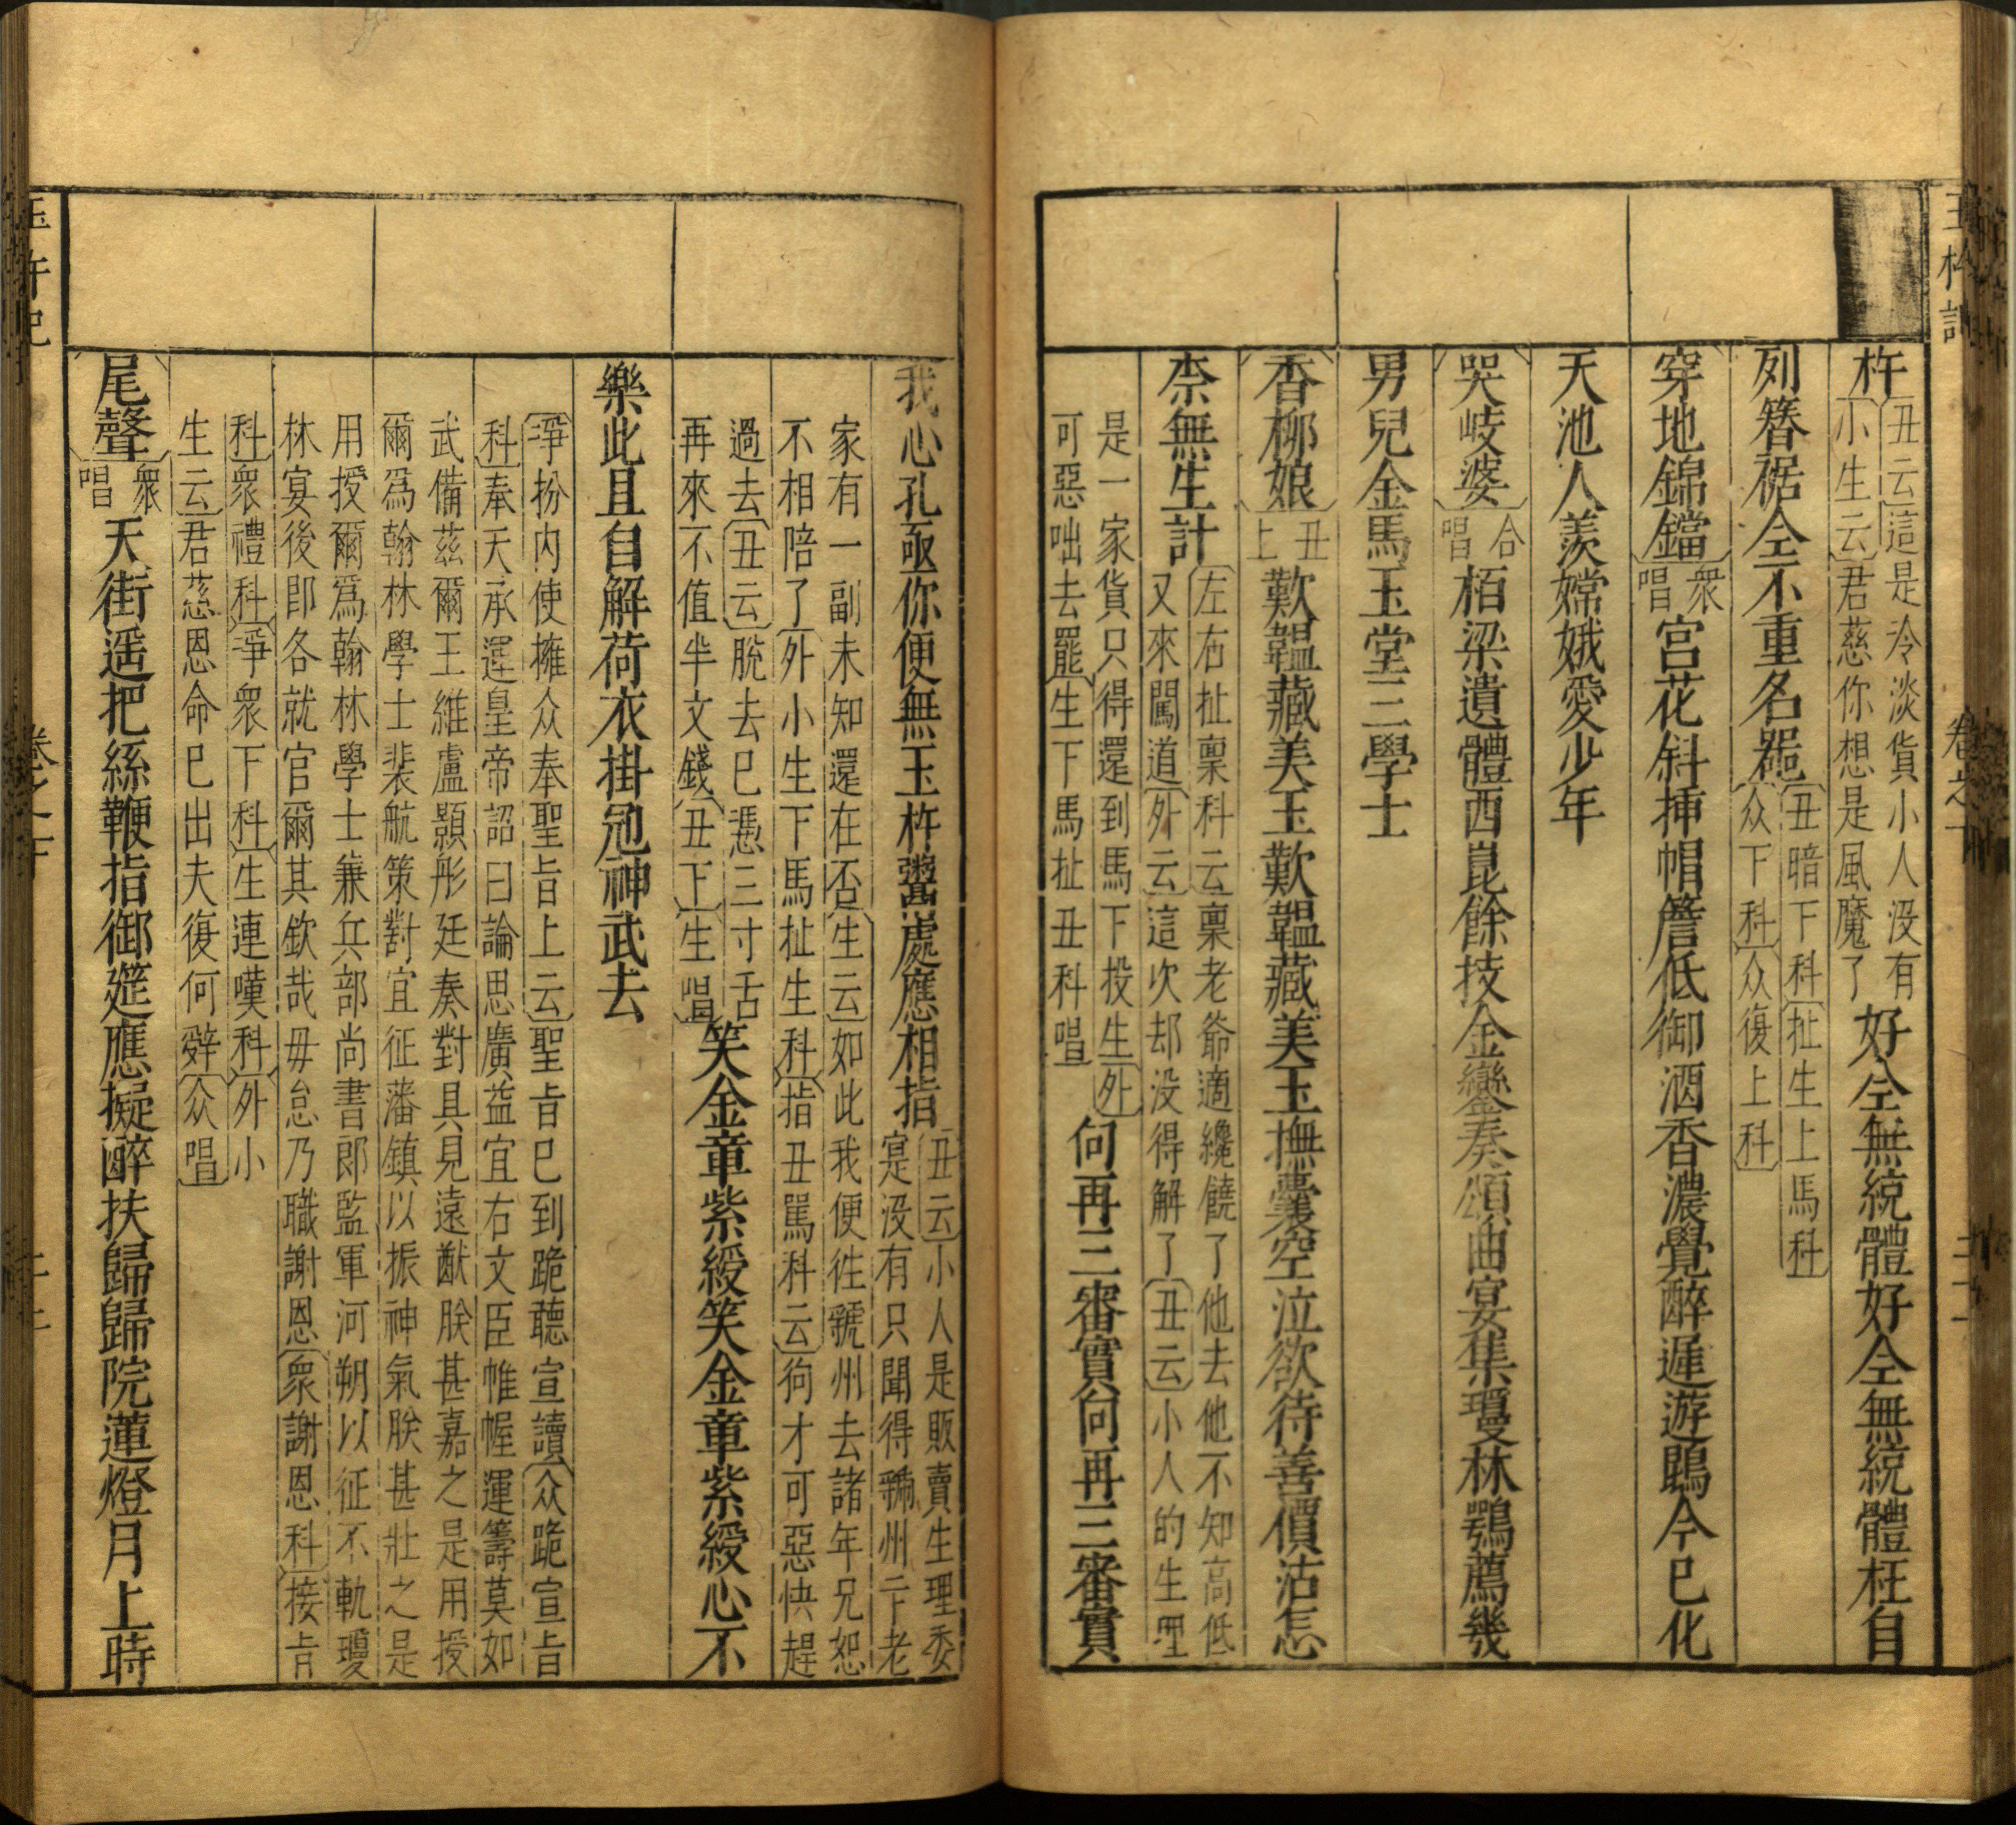 杵
丑云這是冷淡貨小人没有
小生云君慈你想是風魔了
好仝無統體好仝無統體枉自
列簪裾仝不重名噐
丑暗下科扯生上馬科
众下科众復上科
穿地錦鐺
衆唱
宫花斜揷帽簷低御酒香濃覺醉遲遊鵾今已化
天池人羡嫦娥愛少年
哭岐婆
合唱
栢梁遺體西崑餘技金鑾奏頌曲宴集瓊林鶚薦幾
男兒金馬玉堂三學士
香柳娘
丑上
歎韞藏美玉歎韞藏美玉撫囊空泣欲待善價沽怎
柰無生計
左右扯禀科云禀老爺適纔饒了他去他不知高低
又來闖道外云這次却没得解了丑云小人的生理
是一家貨只得還到馬下投生外
可惡咄去罷生下馬扯丑科唱
何再三審實何再三審實
我心孔亟你便無玉杵響處應相指
丑云小人是販賣生理委
寔没有只聞得虢州卞老
家有一副未知還在否生云如此我便徃虢州去諸年兄恕
不相陪了外小生下馬扯生科指丑罵科云狗才可惡快趕
過去丑云脫去巳憑三寸舌
再來不值半文錢丑下生唱
笑金章紫綬笑金章紫綬心不
樂此且自解荷衣掛冠神武去
淨扮内使擁众奉聖旨上云聖旨巳到跪聽宣讀众跪宣旨
科奉天承運皇帝詔曰論思廣益宜右文臣帷幄運籌莫如
武備茲爾王維盧顥彤廷奏對具見遠猷朕甚嘉之是用授
爾爲翰林學士裴航策對宜征藩鎮以振神氣朕甚壯之是
用授爾爲翰林學士兼兵部尚書郎監軍河朔以征不軌瓊
林宴後即各就官爾其欽哉毋怠乃職謝恩衆謝恩科接旨
科衆禮科淨衆下科生連嘆科外小
生云君慈恩命巳出夫復何辝众唱
尾聲
衆唱
天街遥把絲鞭指御筵應擬醉扶歸歸院蓮燈月上時
玉杵記
卷之下